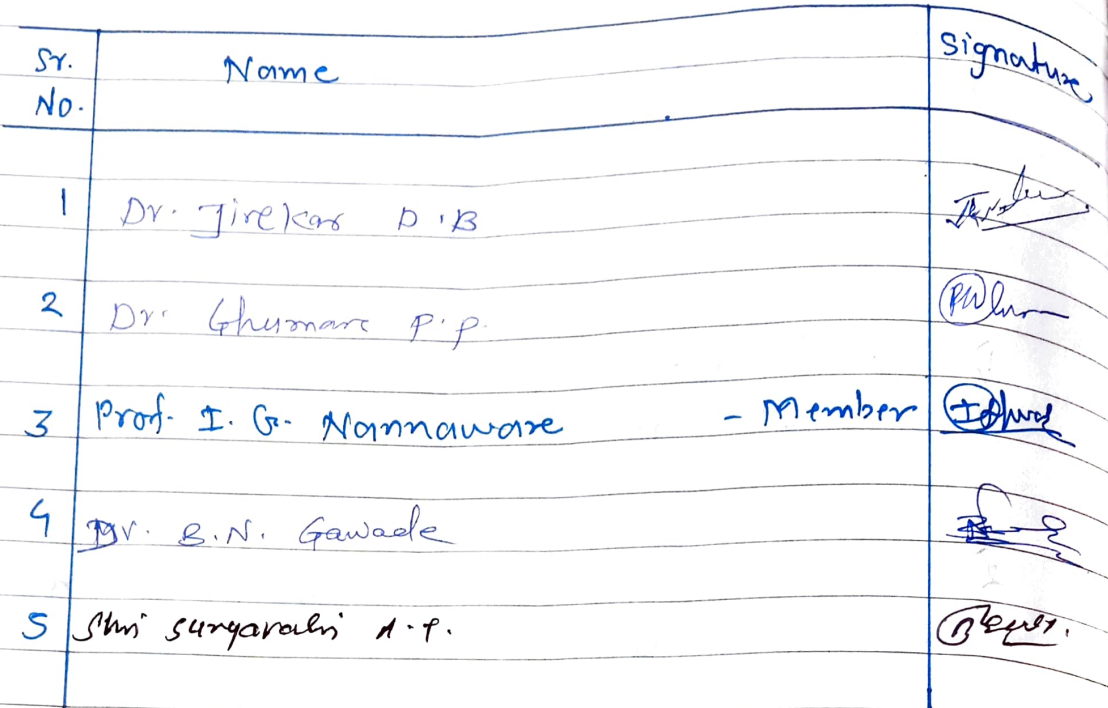 Sr. No. Name Signature
1 Dr. Jirekar D.B
2 Dr. Ghumare P.P.
3 Prof. I. G. Nannaware - Member
4 Dr. B.N. Gawade
5 Shri Suryavanshi A.P.